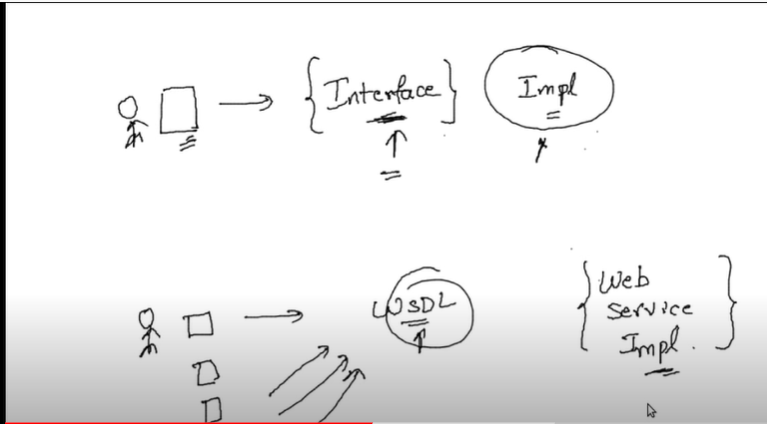 {Interface} Impl
WSDL
{Web
Service
Impl.}